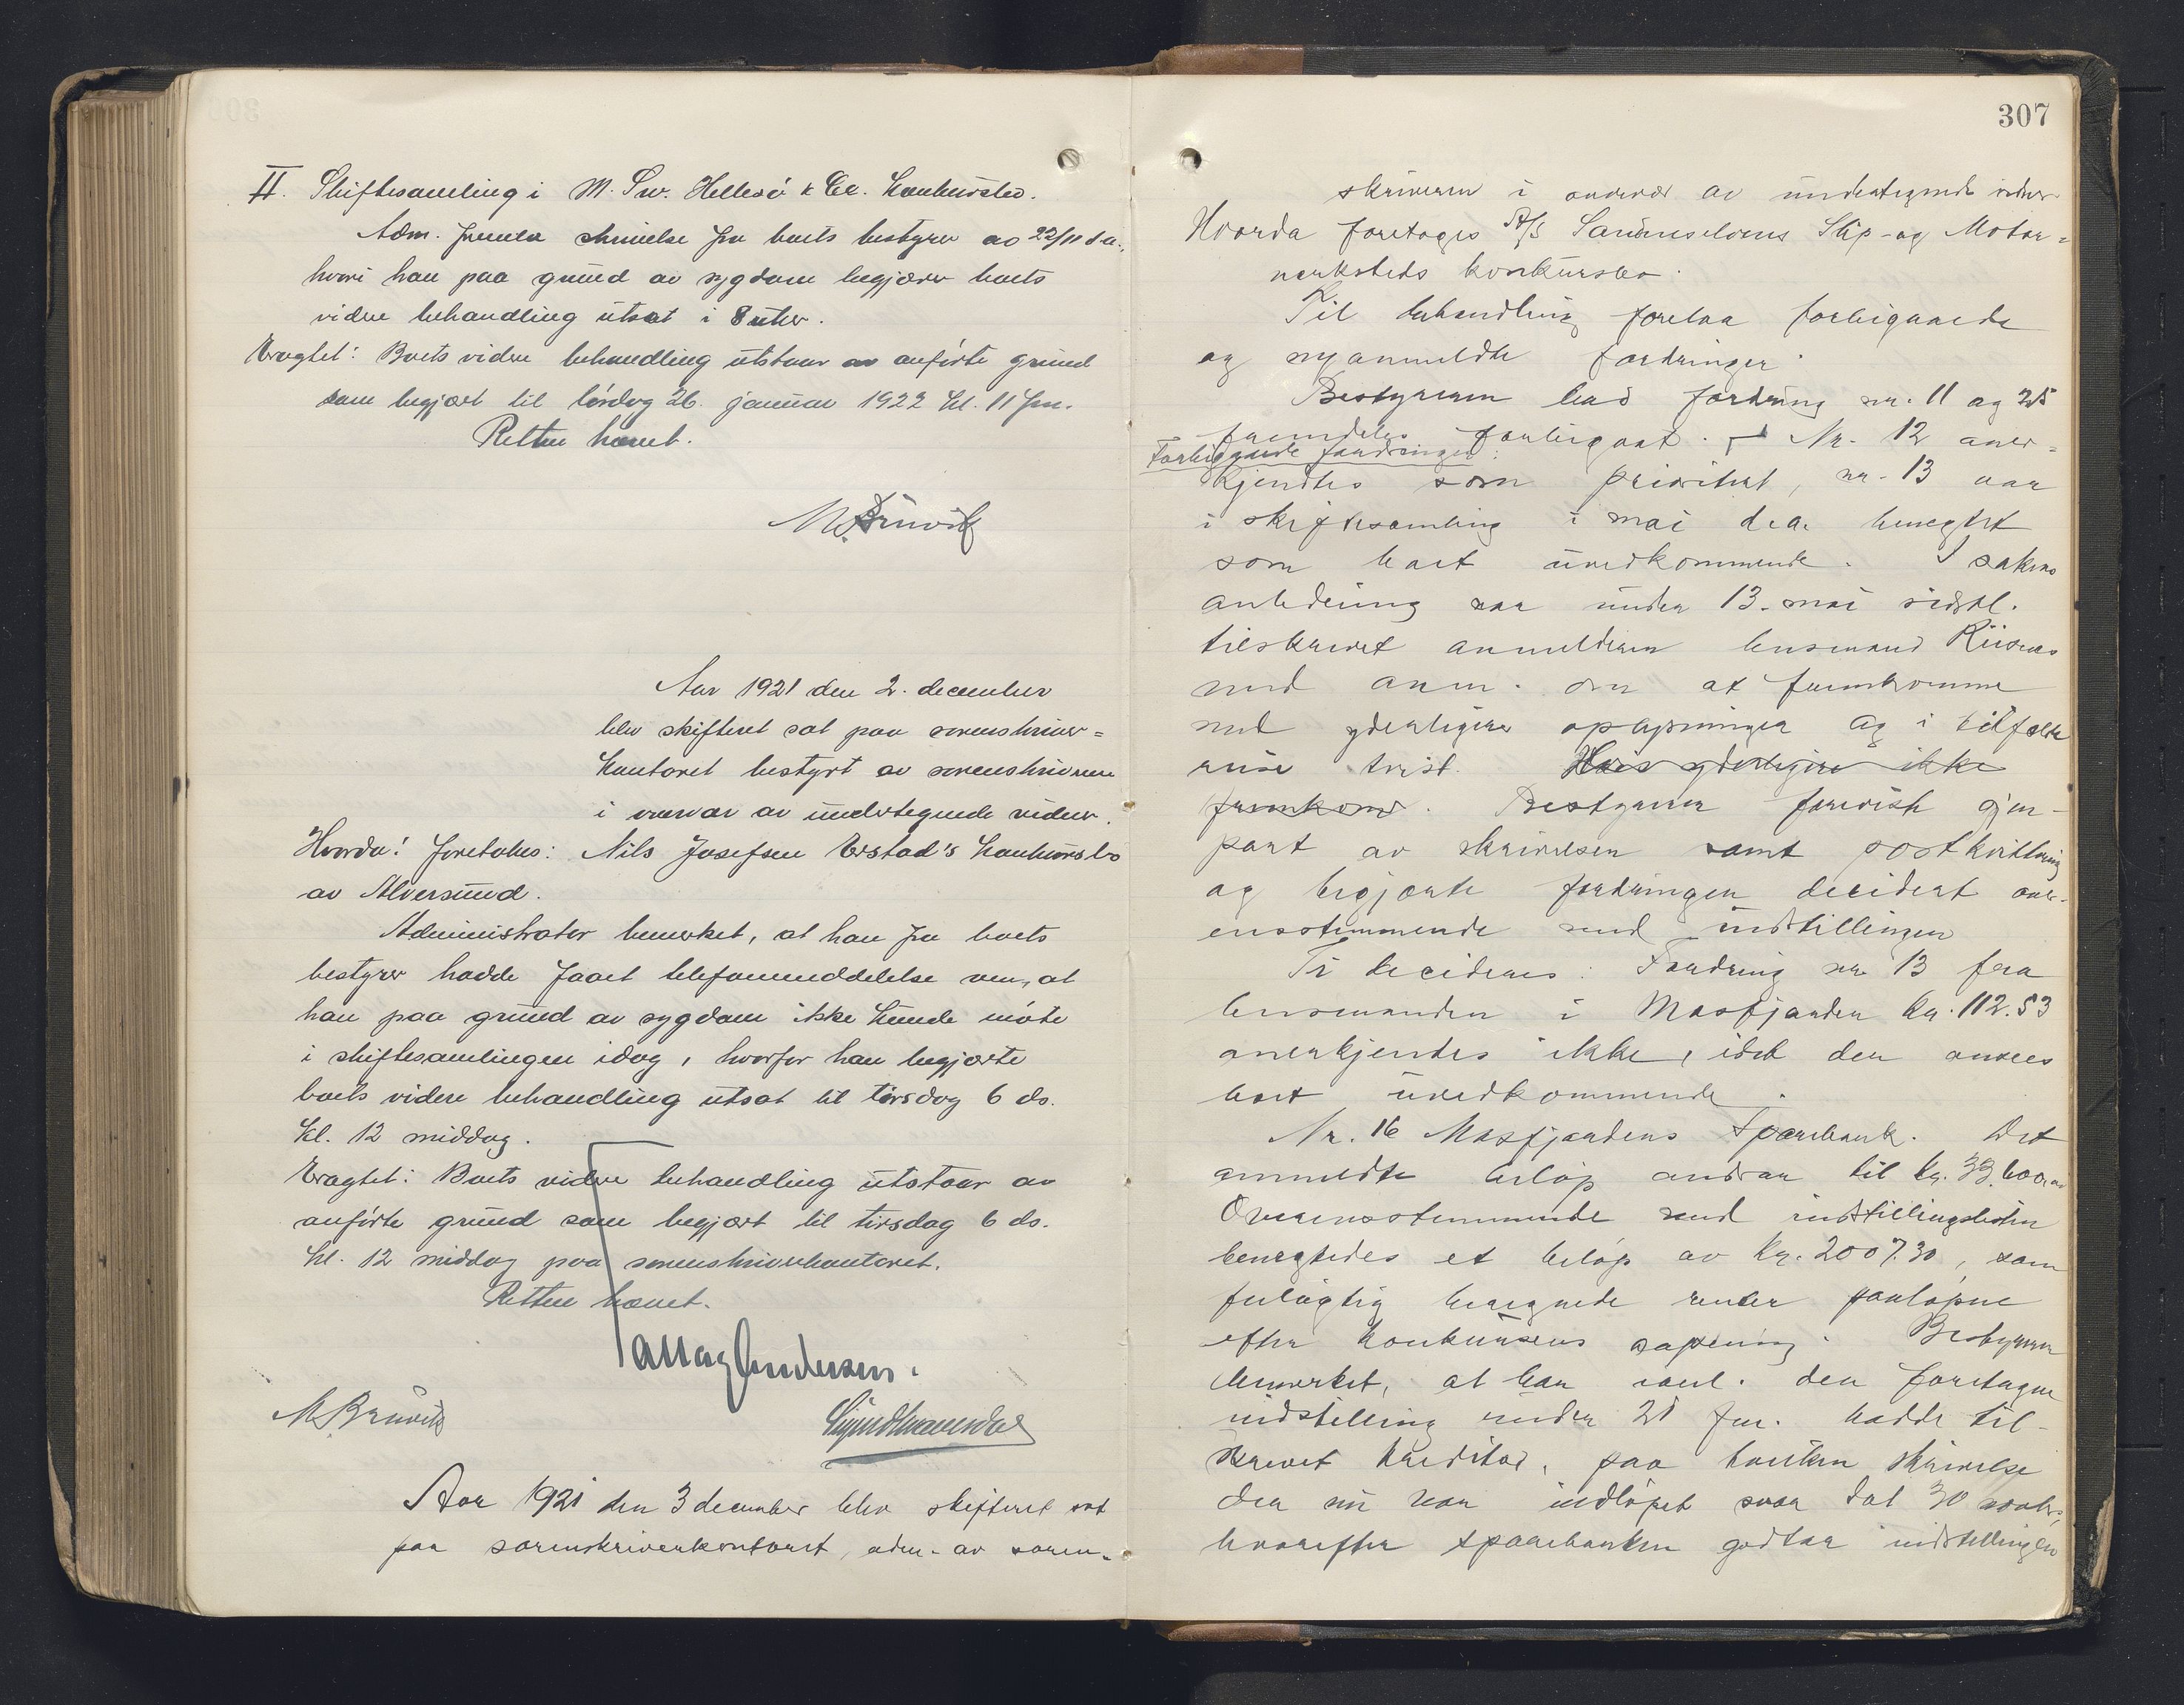 II. Skiftesamling i M. Sw. Hellesö & Co. konkursbo.
Adm. fremla skrivelse fra boets bestyrer av 22/11 d.a.,
hvori han paa grund av sygdom begjærer boets
videre behandling utsat i 8 uker.
Eragtet: Boets videre behandling utstaar av anførte grund
som begjært til lördag 26. januar 1922 kl. 11 fm.
Retten hævet.
M. Bruvik
Aar 1921 den 2. december
blev skifteret sat paa sorenskriver=
kontoret bestyrt av sorenskriveren
i overvær av undertegnede vidner.
Hvorda: foretokes: Nils Josefsen Erstad's konkursbo
av Alversund.
Administrator bemerket, at han fra boets
bestyrer hadde faaet telefonmeddelelse om, at
han paa grund av sygdom ikke kunde möte
i skiftesamlingen idag, hvorfor han begjærte
boets videre behandling utsat til tirsdag 6 ds.
kl. 12 middag.
Eragtet: Boets videre behandling utstaar av
anförte grund som begjært til tirsdag 6 ds.
kl. 12 middag paa sorenskriverkontoret.
Retten hævet.
Andersen.
M. Bruvik
Aar 1921 den 3 december blev skifteret sat
paa sorenskriverkontoret, adm. av soren-
307
skriveren i overvær av undertegnede vidner
Hvorda foretoges A/S Slip- og Motor=
verksteds konkursbo.
Til behandling forelaa forbigaaede
og nyanmeldte fordringer.
Bestyreren lod fordring nr. 11 og 25
fremdeles forbigaat. Nr. 12 aner=
Forbigaaede fordringer:
kjendtes som prioritert, nr. 13 var
i skiftesamling i mai d.a. benegtet
som boet uvedkommende. I sakens
anledning var under 13. mai sidstl.
tilskrevet anmelderen lensmand
med anm. om at fremkomme
med yderligere oplysninger og i tilfælde
reise tvist. Hvis yderligere ikke
fremkom. Bestyreren foreviste gjen-
part av skrivelsen samt postkvittering
og begjærte fordringen decidert over-
ensstemmende med indstillingen
Ti decideres: Fordring nr 13 fra
lensmanden i Masfjorden kr. 112.53
anerkjendes ikke, idet den ansees
boet uvedkommende.
Nr. 16 Masfjordens Sparebank. Det
anmeldte belöp andrar til kr. 33.600.00
Overensstemmende med indstillingslisten
benegtedes et belöp av kr. 2007.30, som
feilagtig beregnede renter paalöpne
efter konkursens aapning. Bestyreren
bemerket, at han ianl. den foretagne
indstilling under 21 hadde til-
skrevet kreditor, paa hvilken skrivelse
der nu var indlöpet svar dat 30 novbr.,
hvorefter sparebanken godtar indstillingen